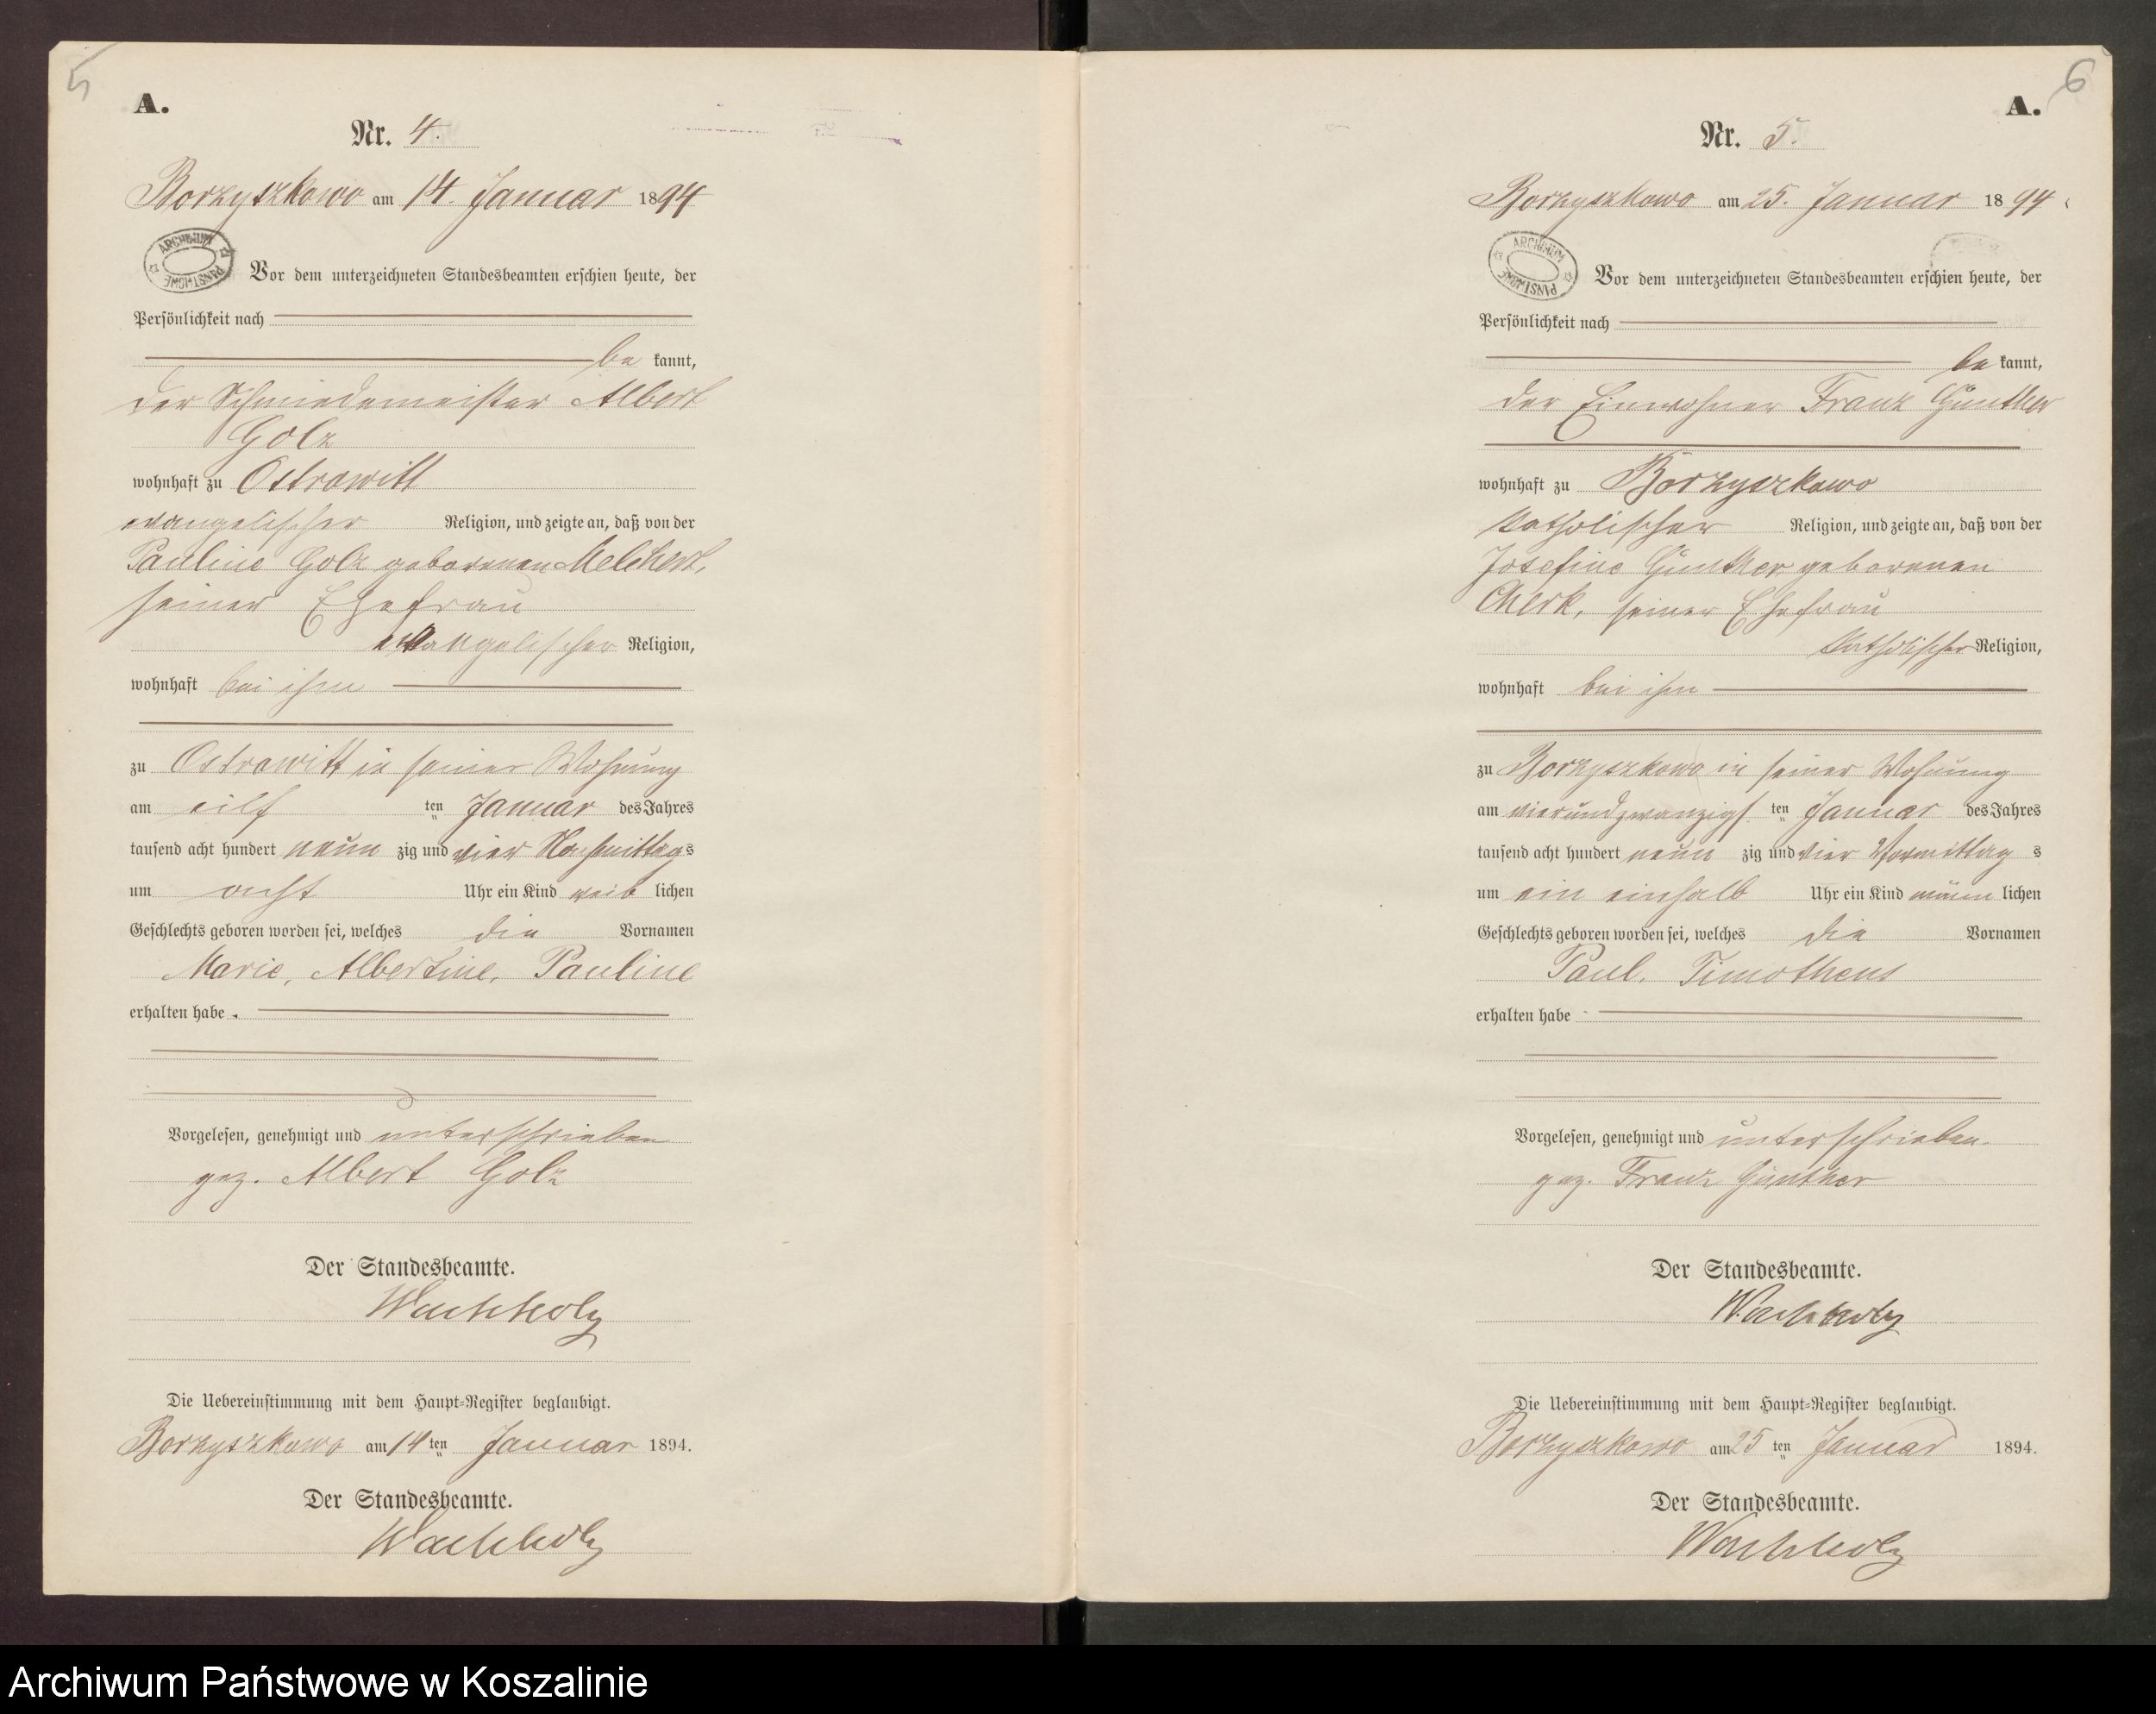 5
A.
Nr. 4.
Borzyszkowo am 14. Januar 1894
ARCHIWUM PAŃSTWOWE
Vor dem unterzeichneten Standesbeamten erschien heute, der
Persönlichkeit nach
be kannt,
der Schmiedemeister Albert
Golz
wohnhaft zu Ostrowitt
evangelischer Religion, und zeigte an, daß von der
Pauline Golz geborenen Melchert,
seiner Ehefrau
evangelischer Religion,
wohnhaft bei ihm
zu Ostrowitt in seiner Wohnung
am eilf ten Januar des Jahres
tausend acht hundert neun zig und vier Nachmittags
um acht Uhr ein Kind weib lichen
Geschlechts geboren worden sei, welches die Vornamen
Marie, Albertine, Pauline
erhalten habe.
Vorgelesen, genehmigt und unterschrieben
gez. Albert Golz
Der Standesbeamte.
Wachholz
Die Uebereinstimmung mit dem Haupt-Register beglaubigt.
Borzyszkowo am 14 ten Januar 1894.
Der Standesbeamte.
Wachholz
6
A.
Nr. 5.
Borzyszkowo am 25. Januar 1894
ARCHIWUM PAŃSTWOWE
Vor dem unterzeichneten Standesbeamten erschien heute, der
Persönlichkeit nach
be kannt,
der Einwohner Franz Günther
wohnhaft zu Borzyszkowo
katholischer Religion, und zeigte an, daß von der
Josefine Günther geborenen
Cherk, seiner Ehefrau
katholischer Religion,
wohnhaft bei ihm
zu Borzyszkowo in seiner Wohnung
am vierundzwanzigs ten Januar des Jahres
tausend acht hundert neun zig und vier Vormittag s
um ein einhalb Uhr ein Kind männ lichen
Geschlechts geboren worden sei, welches die Vornamen
Paul, Timotheus
erhalten habe
Vorgelesen, genehmigt und unterschrieben.
gez. Franz Günther
Der Standesbeamte.
Wachholz
Die Uebereinstimmung mit dem Haupt-Register beglaubigt.
Borzyszkowo am 25 ten Januar 1894.
Der Standesbeamte.
Wachholz
Archiwum Państwowe w Koszalinie